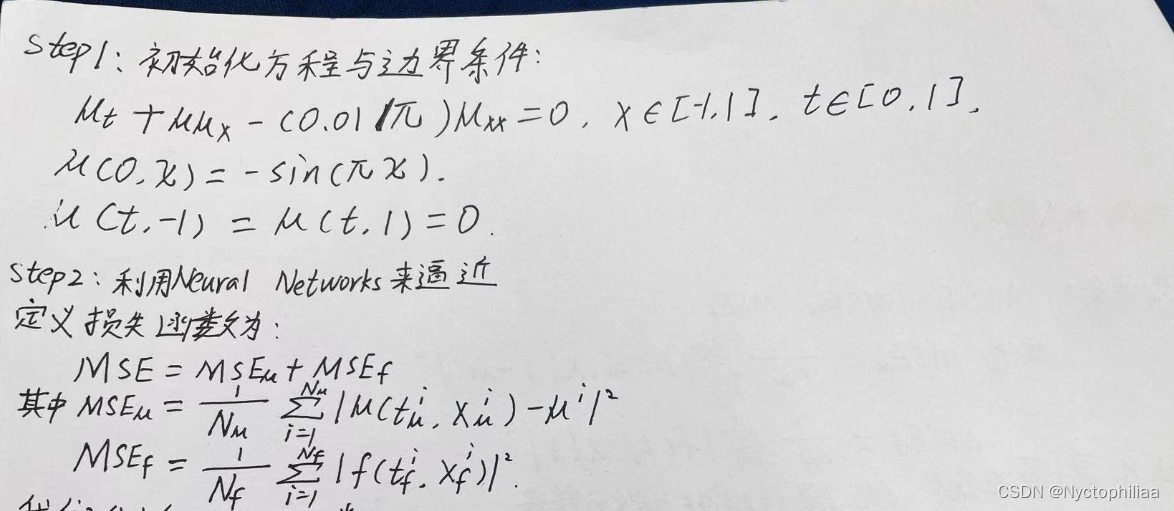 Step1: 初始化方程与边界条件:
μt + μμx - (0.01/π)μxx = 0, x∈[-1,1], t∈[0,1],
μ(0,x) = -sin(πx).
μ(t,-1) = μ(t,1) = 0.
Step2: 利用Neural Networks来逼近
定义损失函数为:
MSE = MSEμ + MSEf
其中 MSEμ = 1/Nμ ∑_{i=1}^{Nμ} |μ(tμ^i, xμ^i) - μ^i|²
MSEf = 1/Nf ∑_{i=1}^{Nf} |f(tf^i, xf^i)|².
CSDN @Nyctophiliaa